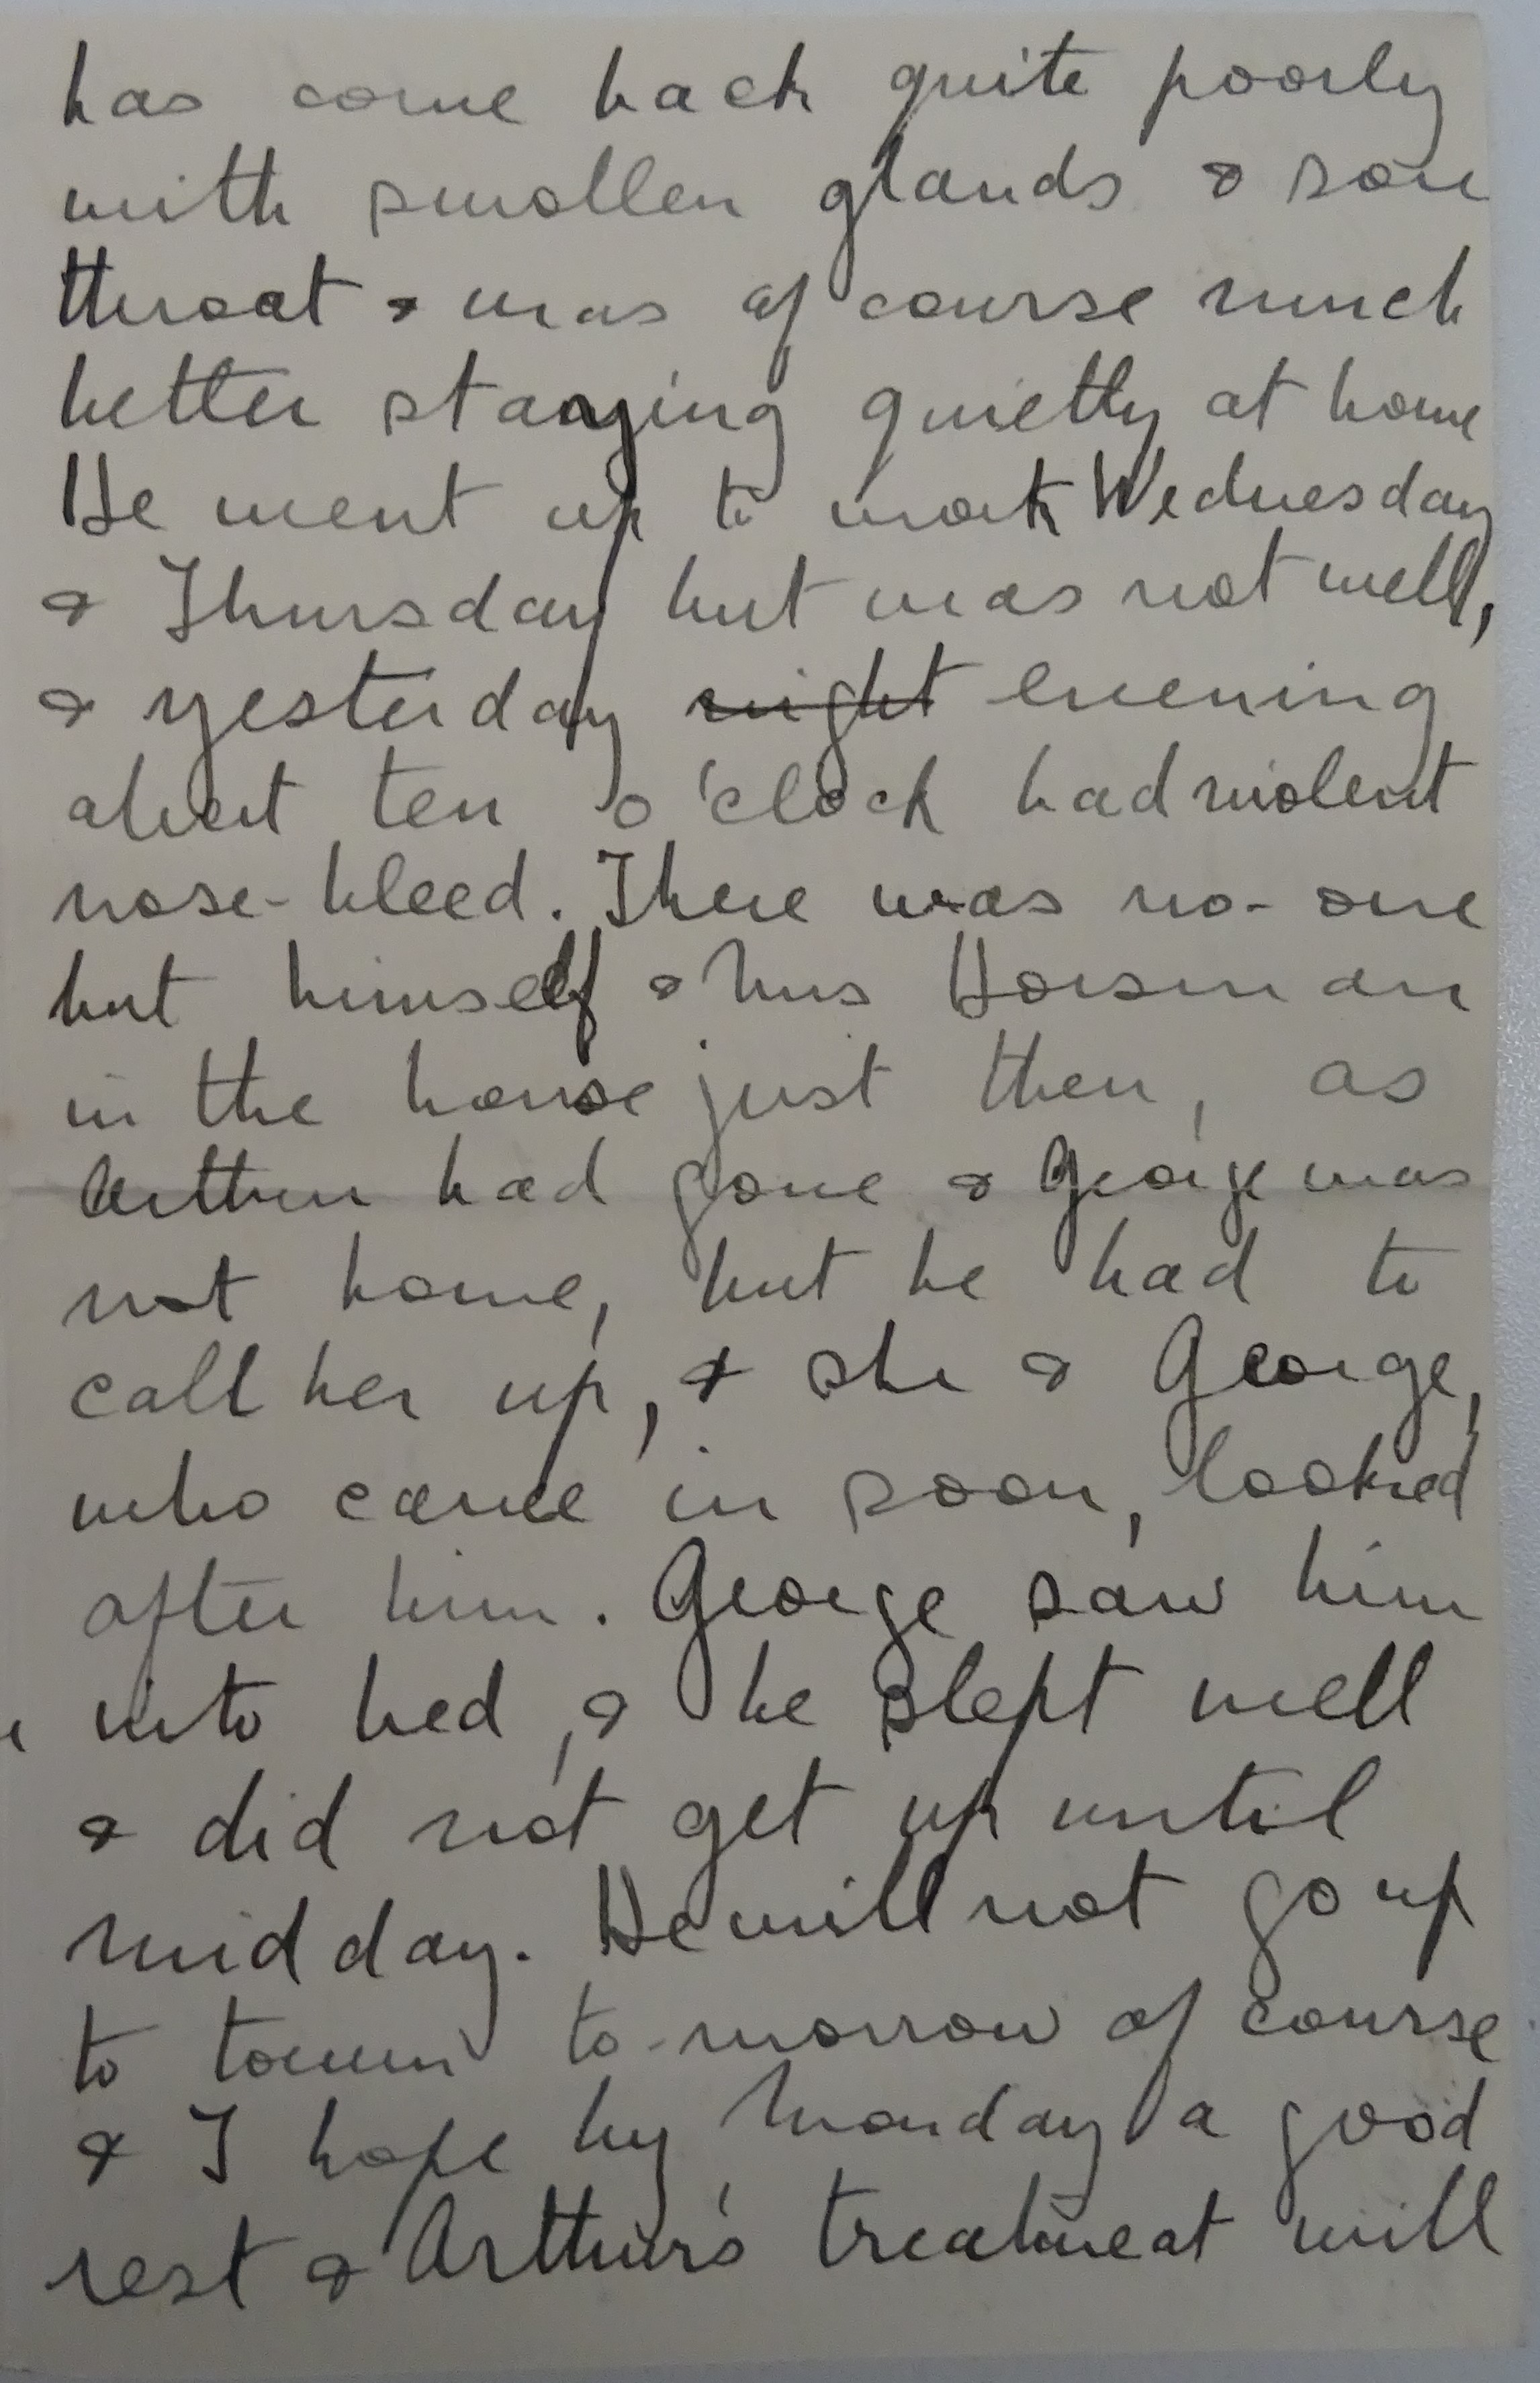 has come back quite poorly
with swollen glands & sore
throat & was of course much
better staying quietly at home
He went up to work Wednesday
& Thursday but was not well,
& yesterday night evening
about ten o'clock had violent
nose-bleed. There was no-one
but himself & Mrs Horsman
in the house just then, as
Arthur had gone & George was
not home, but he had to
call her up, & she & George,
who came in soon, looked
after him. George saw him
into bed, & he slept well
& did not get up until
mid day. He will not go up
to town to-morrow of course
& I hope by Monday a good
rest & Arthur's treatment will